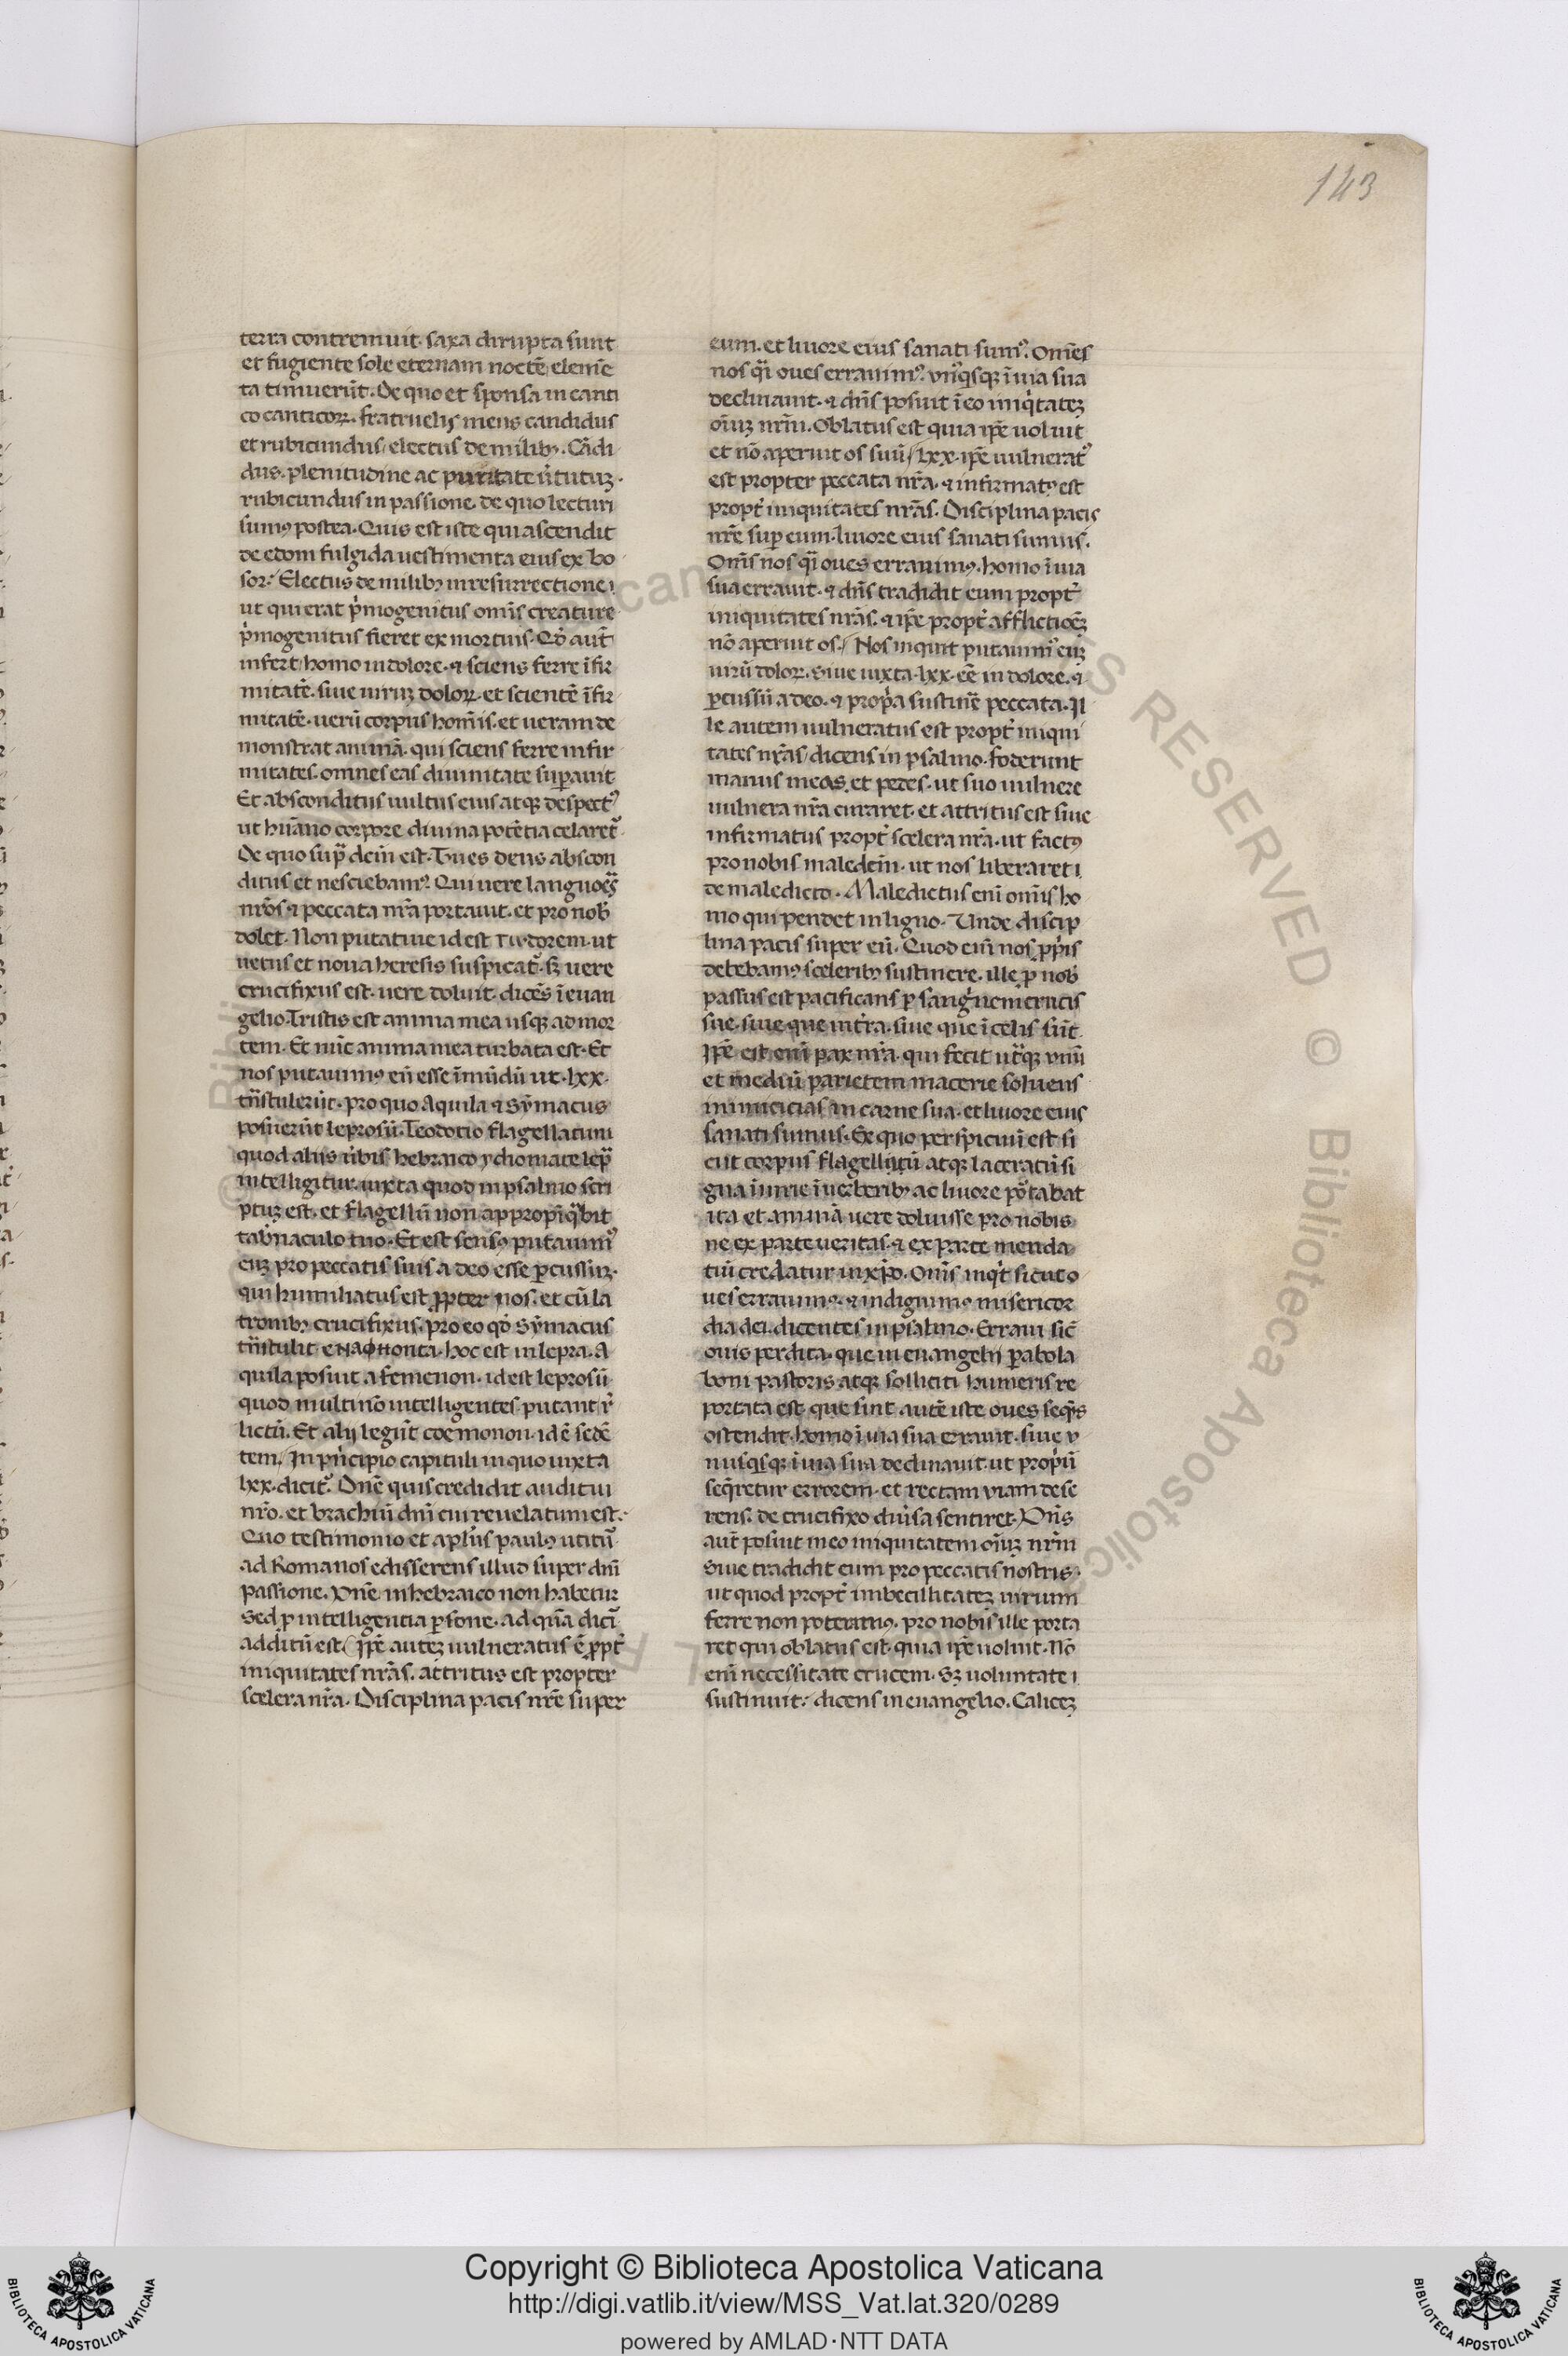 143
terra contremuit. saxa dirupta sunt
et fugiente sole eternam noctē elemē
ta timuerūt. De quo et sponsa in canti
co canticoꝝ. fratruelis meus candidus
et rubicundus electus de milibꝫ. Cādi
dus. plenitudine ac puritate ūtutuꝫ.
rubicundus in passione. de quo lecturi
sumꝰ postea. Quis est iste qui ascendit
de edom fulgida uestimenta eius ex bo
sor? Electus de milibꝫ in resurrectione
ut qui erat p̓mogenitus om̄is creature
p̓mogenitus fieret ex mortuis. Qđ aut̄
infert homo in dolore. ⁊ sciens ferre īfir
mitatē. siue uiruꝫ doloꝝ. et scientē īfir
mitatē. uerū corpus hoīs. et ueram de
monstrat animā. qui sciens ferre infir
mitates. omnes eas diuinitate suꝑauit
Et absconditus uultus eius atqꝫ despectꝰ
ut hūano corpore diuina potētia celaret᷑.
De quo sup̄ dc̄m est. Tu es deus abscon
ditus et nesciebamꝰ. Qui uere languoēs
nr̄os ⁊ peccata nr̄a portauit. et pro nob̄
dolet. Non putatiue id est τω dorem. ut
uetus et noua heresis suspicat᷑. sꝫ uere
crucifixus est. uere doluit. dicēs ī euan
gelio. Tristis est anima mea usqꝫ ad mor
tem. Et nūc anima mea turbata est. Et
nos putauimꝰ eū esse īmūdū ut .lxx.
tn̄stulerūt. pro quo Aquila ⁊ Sȳmacus
posuerūt leprosū. Teodotio flagellatum
quod aliis ūbis hebraico ydiomate lep̄
intelligitur. iuxta quod in psalmo scri
ptuꝫ est. et flagellū non appropīq̓bit
tab̄naculo tuo. Et est sensꝰ putauimꝰ
eūꝫ pro peccatis suis a deo esse ꝑcussūꝫ.
qui humiliatus est ꝓpter nos. et cū la
tronibꝫ crucifixus. pro eo qđ Sȳmacus
tn̄stulit ε̄ ναφηοντα. hoc est in lepra. A
quila posuit afemenon. id est leprosū
quod multi nō intelligentes putant r̓
lictū. Et alij legūt coemonon. id ē sedē
tem. In p̓ncipio capituli in quo iuxta
lxx. dicit᷑. Dn̄e quis credidit auditui
nr̄o. et brachiū dn̄i cui reuelatum est.
Quo testimonio et apl̄us paulꝰ utitur̄
ad Romanos edisserens illud super dn̄i
passione. Dn̄e in hebraico non habetur
Sed ꝓ intelligentia ꝑsone. ad quā dicit᷑
additū est. Ip̄e auteꝫ uulneratus ē ꝓpt̓
iniquitates nr̄as. attritus est propter
scelera nr̄a. Disciplina pacis nr̄e super
eum. et liuore eius sanati sumꝰ. Om̄es
nos q̓i oues errauimꝰ. vnꝰq̓sqꝫ ī uia sua
declinauit. ⁊ dn̄s posuit ī eo iniq̓tateꝫ
oīuꝫ nr̄m. Oblatus est quia ip̄e uoluit
et nō aperuit os suū. lxx. ip̄e uulneratꝰ
est propter peccata nr̄a. ⁊ infirmatꝰ est
propt̓ iniquitates nr̄as. Disciplina pacis
nr̄e suꝑ eum. liuore eius sanati sumus.
Om̄s nos q̓i oues errauimꝰ. homo ī uia
sua errauit. ⁊ dn̄s tradidit eum propt̓
iniquitates nr̄as. ⁊ ip̄e propt̓ afflictioēꝫ
nō aperuit os. Nos inquit putauimꝰ eūꝫ
uirū doloꝝ. siue iuxta .lxx. eē in dolore. ⁊
ꝑcussū a deo. ⁊ prop̓a sustinē peccata. Il
le autem uulneratus est propt̓ iniqui
tates nr̄as dicens in psalmo. foderunt
manus meas. et pedes. ut suo uulnere
uulnera nr̄a curaret. et attritus est siue
infirmatus propt̓ scelera nr̄a. ut factꝰ
pro nobis maledcm̄. ut nos liberaret
de maledicto. Maledictus enī om̄is ho
mo qui pendet in ligno. Unde discip
lina pacis super eū. Quod enī nos ꝓp̓is
debebamꝰ sceleribꝫ sustinere. ille ꝓ nob̄
passus est pacificans ꝑ sanguinem crucis
sue. siue que int̓ra. siue que ī celis sūt.
Ip̄e est enī pax nr̄a. qui fecit ut̓qꝫ vnū
et mediū parietem macerie soluens
inimicicias in carne sua. et liuore eius
sanati sumus. Ex quo perspicuū est si
cut corpus flagellatū atqꝫ laceratū si
gna iniurie ī uerberibꝫ ac liuore portabat
ita et animā uere doluisse pro nobis
ne ex parte ueritas. ⁊ ex parte menda
tiū credatur in xp̄o. Om̄s inq̓t sicut o
ues errauimꝰ. ⁊ indiguimꝰ misericor
dia dei. dicentes in psalmo. Erraui sic̄
ouis perdita. que in euangelij ꝑabola
boni pastoris atqꝫ solliciti humeris re
portata est. que sint autē iste oues seq̄s
ostendit. homo ī uia sua errauit. siue v
nusq̓sqꝫ ī uia sua declinauit. ut prop̓ū
seq̄retur errorem. et rectam viam dese
rens. de crucifixo diūsa sentiret. Dn̄s
aut̄ posuit in eo iniquitatem oīuꝫ nr̄m
Siue tradidit eum pro peccatis nostris.
ut quod propt̓ imbecillitateꝫ uirium
ferre non poteramꝰ. pro nobis ille porta
ret qui oblatus est. quia ip̄e uoluit. Nō
enī necessitate crucem. sꝫ uoluntate
sustinuit. dicens in euangelio. Caliceꝫ
Copyright © Biblioteca Apostolica Vaticana
http://digi.vatlib.it/view/MSS_Vat.lat.320/0289
powered by AMLAD·NTT DATA